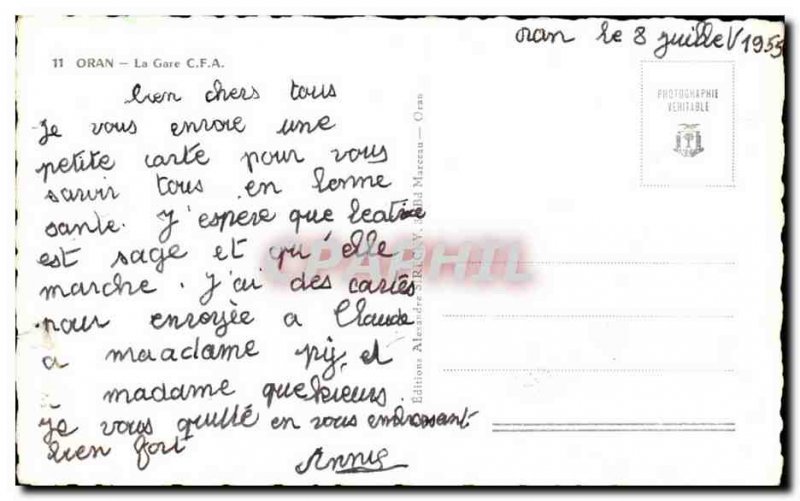 oran le 8 juillet 1955
11 ORAN — La Gare C.F.A.
PHOTOGRAPHIE
VERITABLE
bien chers tous
Je vous envoie une
petite carte pour vous
savir tous en bonne
sante. J'espere que beatrice
est sage et qu'elle
marche. J'ai des cartes
pour envoyée a Claude
a maadame py, et
a madame
Je vous quitté en vous embrassant
bien fort
Annie
Éditions Alexandre Bd Marceau — Oran
CPAPHIL